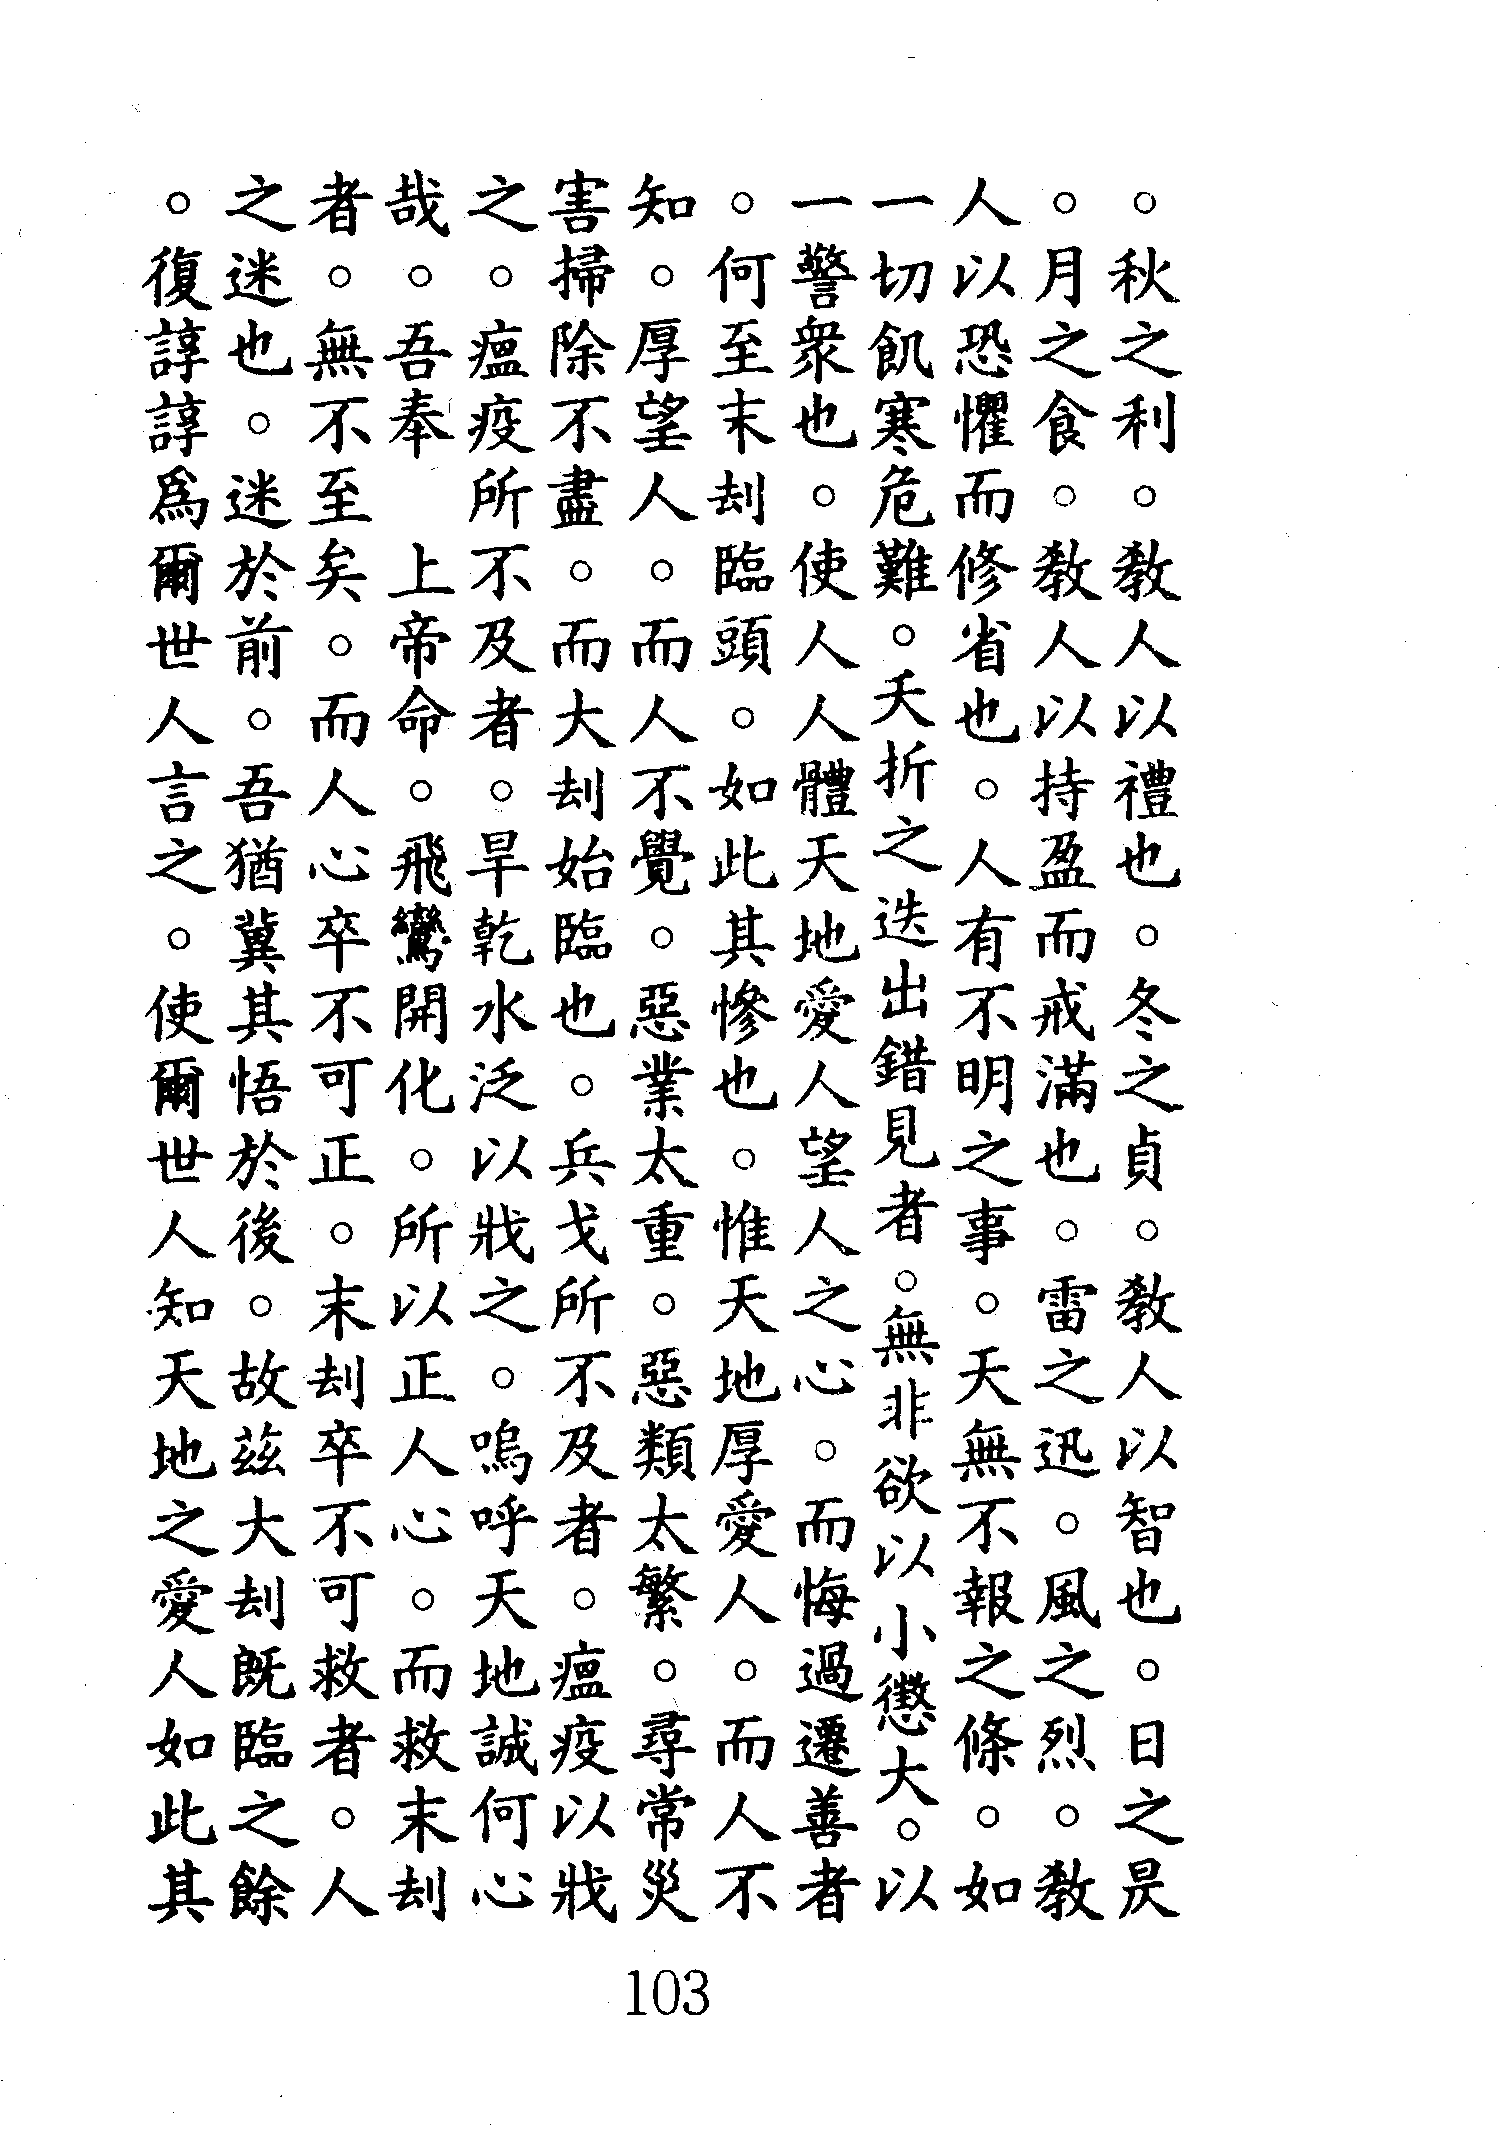 。秋之利。敎人以禮也。冬之貞。敎人以智也。日之昃
。月之食。敎人以持盈而戒滿也。雷之迅。風之烈。敎
人以恐懼而修省也。人有不明之事。天無不報之條。如
一切飢寒危難。夭折之迭出錯見者。無非欲以小懲大。以
一警衆也。使人人體天地愛人望人之心。而悔過遷善者
。何至末刦臨頭。如此其慘也。惟天地厚愛人。而人不
知。厚望人。而人不覺。惡業太重。惡類太繁。尋常災
害掃除不盡。而大刦始臨也。兵戈所不及者。瘟疫以戕
之。瘟疫所不及者。旱乾水泛以戕之。嗚呼天地誠何心
哉。吾奉　上帝命。飛鸞開化。所以正人心。而救末刦
者。無不至矣。而人心卒不可正。末刦卒不可救者。人
之迷也。迷於前。吾猶冀其悟於後。故茲大刦旣臨之餘
。復諄諄爲爾世人言之。使爾世人知天地之愛人如此其
103